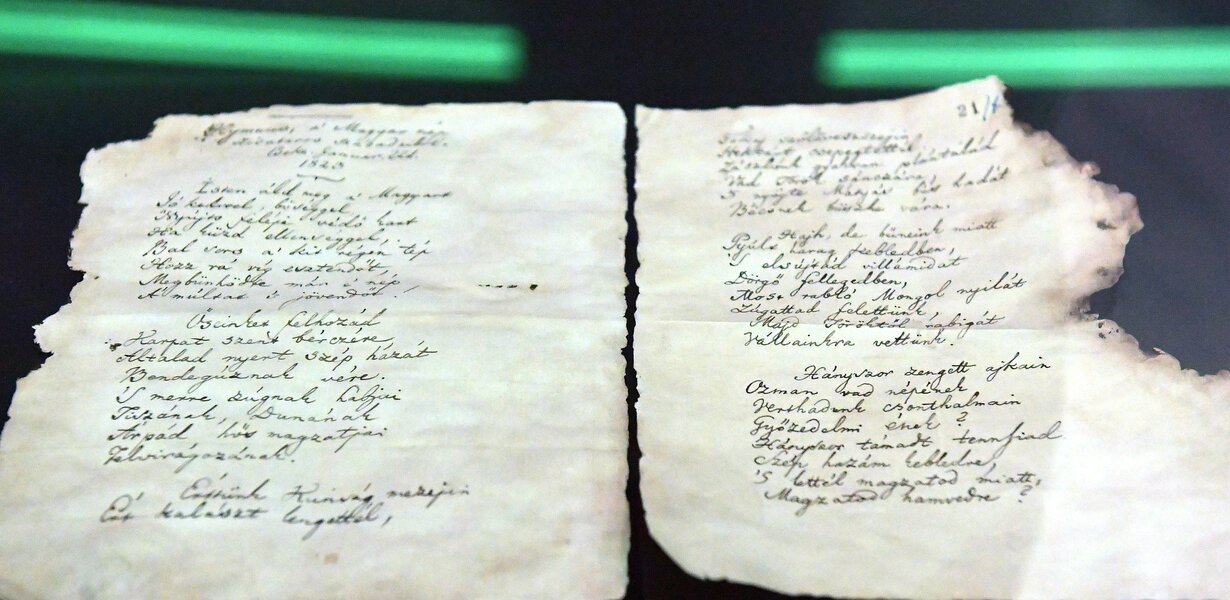 Hymnus, a' Magyar nép
zivataros századaiból.
Cseke, Januar. 22d.
1823
Isten áldd meg a' Magyart
Jó kedvvel, bőséggel,
Nyújts feléje védő kart
Ha küzd ellenséggel;
Bal sors a' kit régen tép
Hozz rá víg esztendőt,
Megbűnhődte már e' nép
A' múltat 's jövendőt!
Őseinket felhozád
Kárpát szent bérczére,
Általad nyert szép hazát
Bendegúznak vére.
'S merre zúgnak habjai
Tiszának, Dunának
Árpád hős magzatjai
Felvirágozának.
Értünk Kunság mezején
Ért kalászt lengettél,
21/A
Tokaj szőlővesszején
Nektárt csepegtettél.
Zászlónk gyakran plántálád
Vad Török sánczára,
'S nyögte Mátyás bús hadát
Bécsnek büszke vára.
Hajh, de bűneink miatt
Gyúlt harag kebledben,
'S elsújtád villámidat
Dörgő fellegedben,
Most rabló Mongol nyilát
Zúgattad felettünk,
Majd Töröktől rabigát
Vállainkra vettünk.
Hányszor zengett ajkain
Ozman vad népének
Vert hadunk csonthalmain
Győzedelmi ének?
Hányszor támadt tenn fiad
Szép hazám kebledre,
'S lettél magzatod miatt,
Magzatod hamvedre?